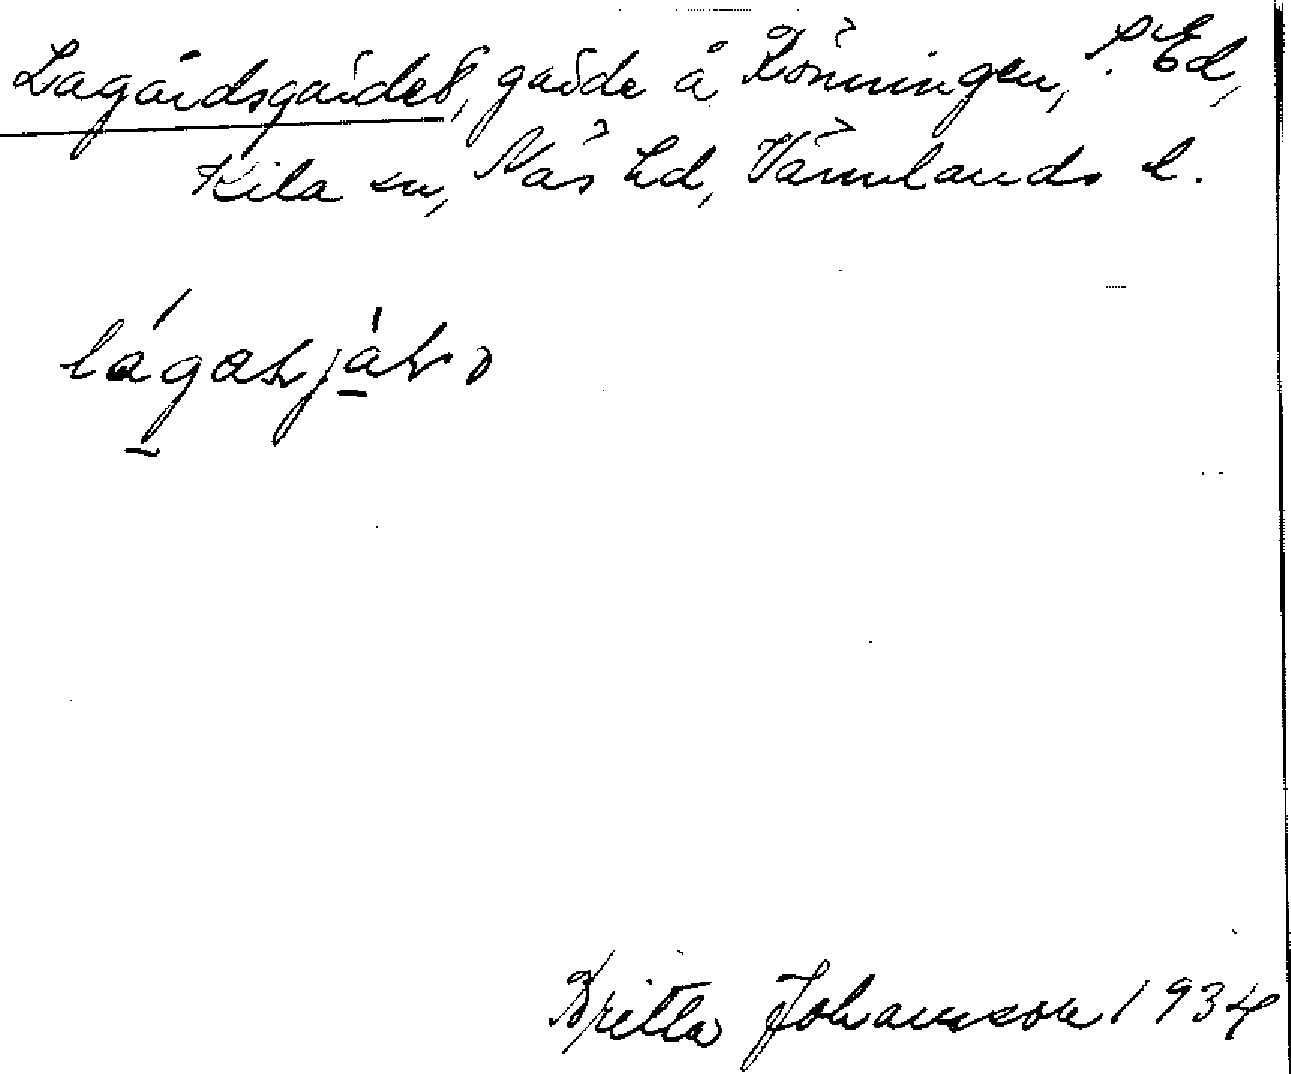 Lagårdsgärdet, gärde å Rönningen, S. Ed,
Kila sn, Näs hd, Värmlands l.
Britta Johansson 1934